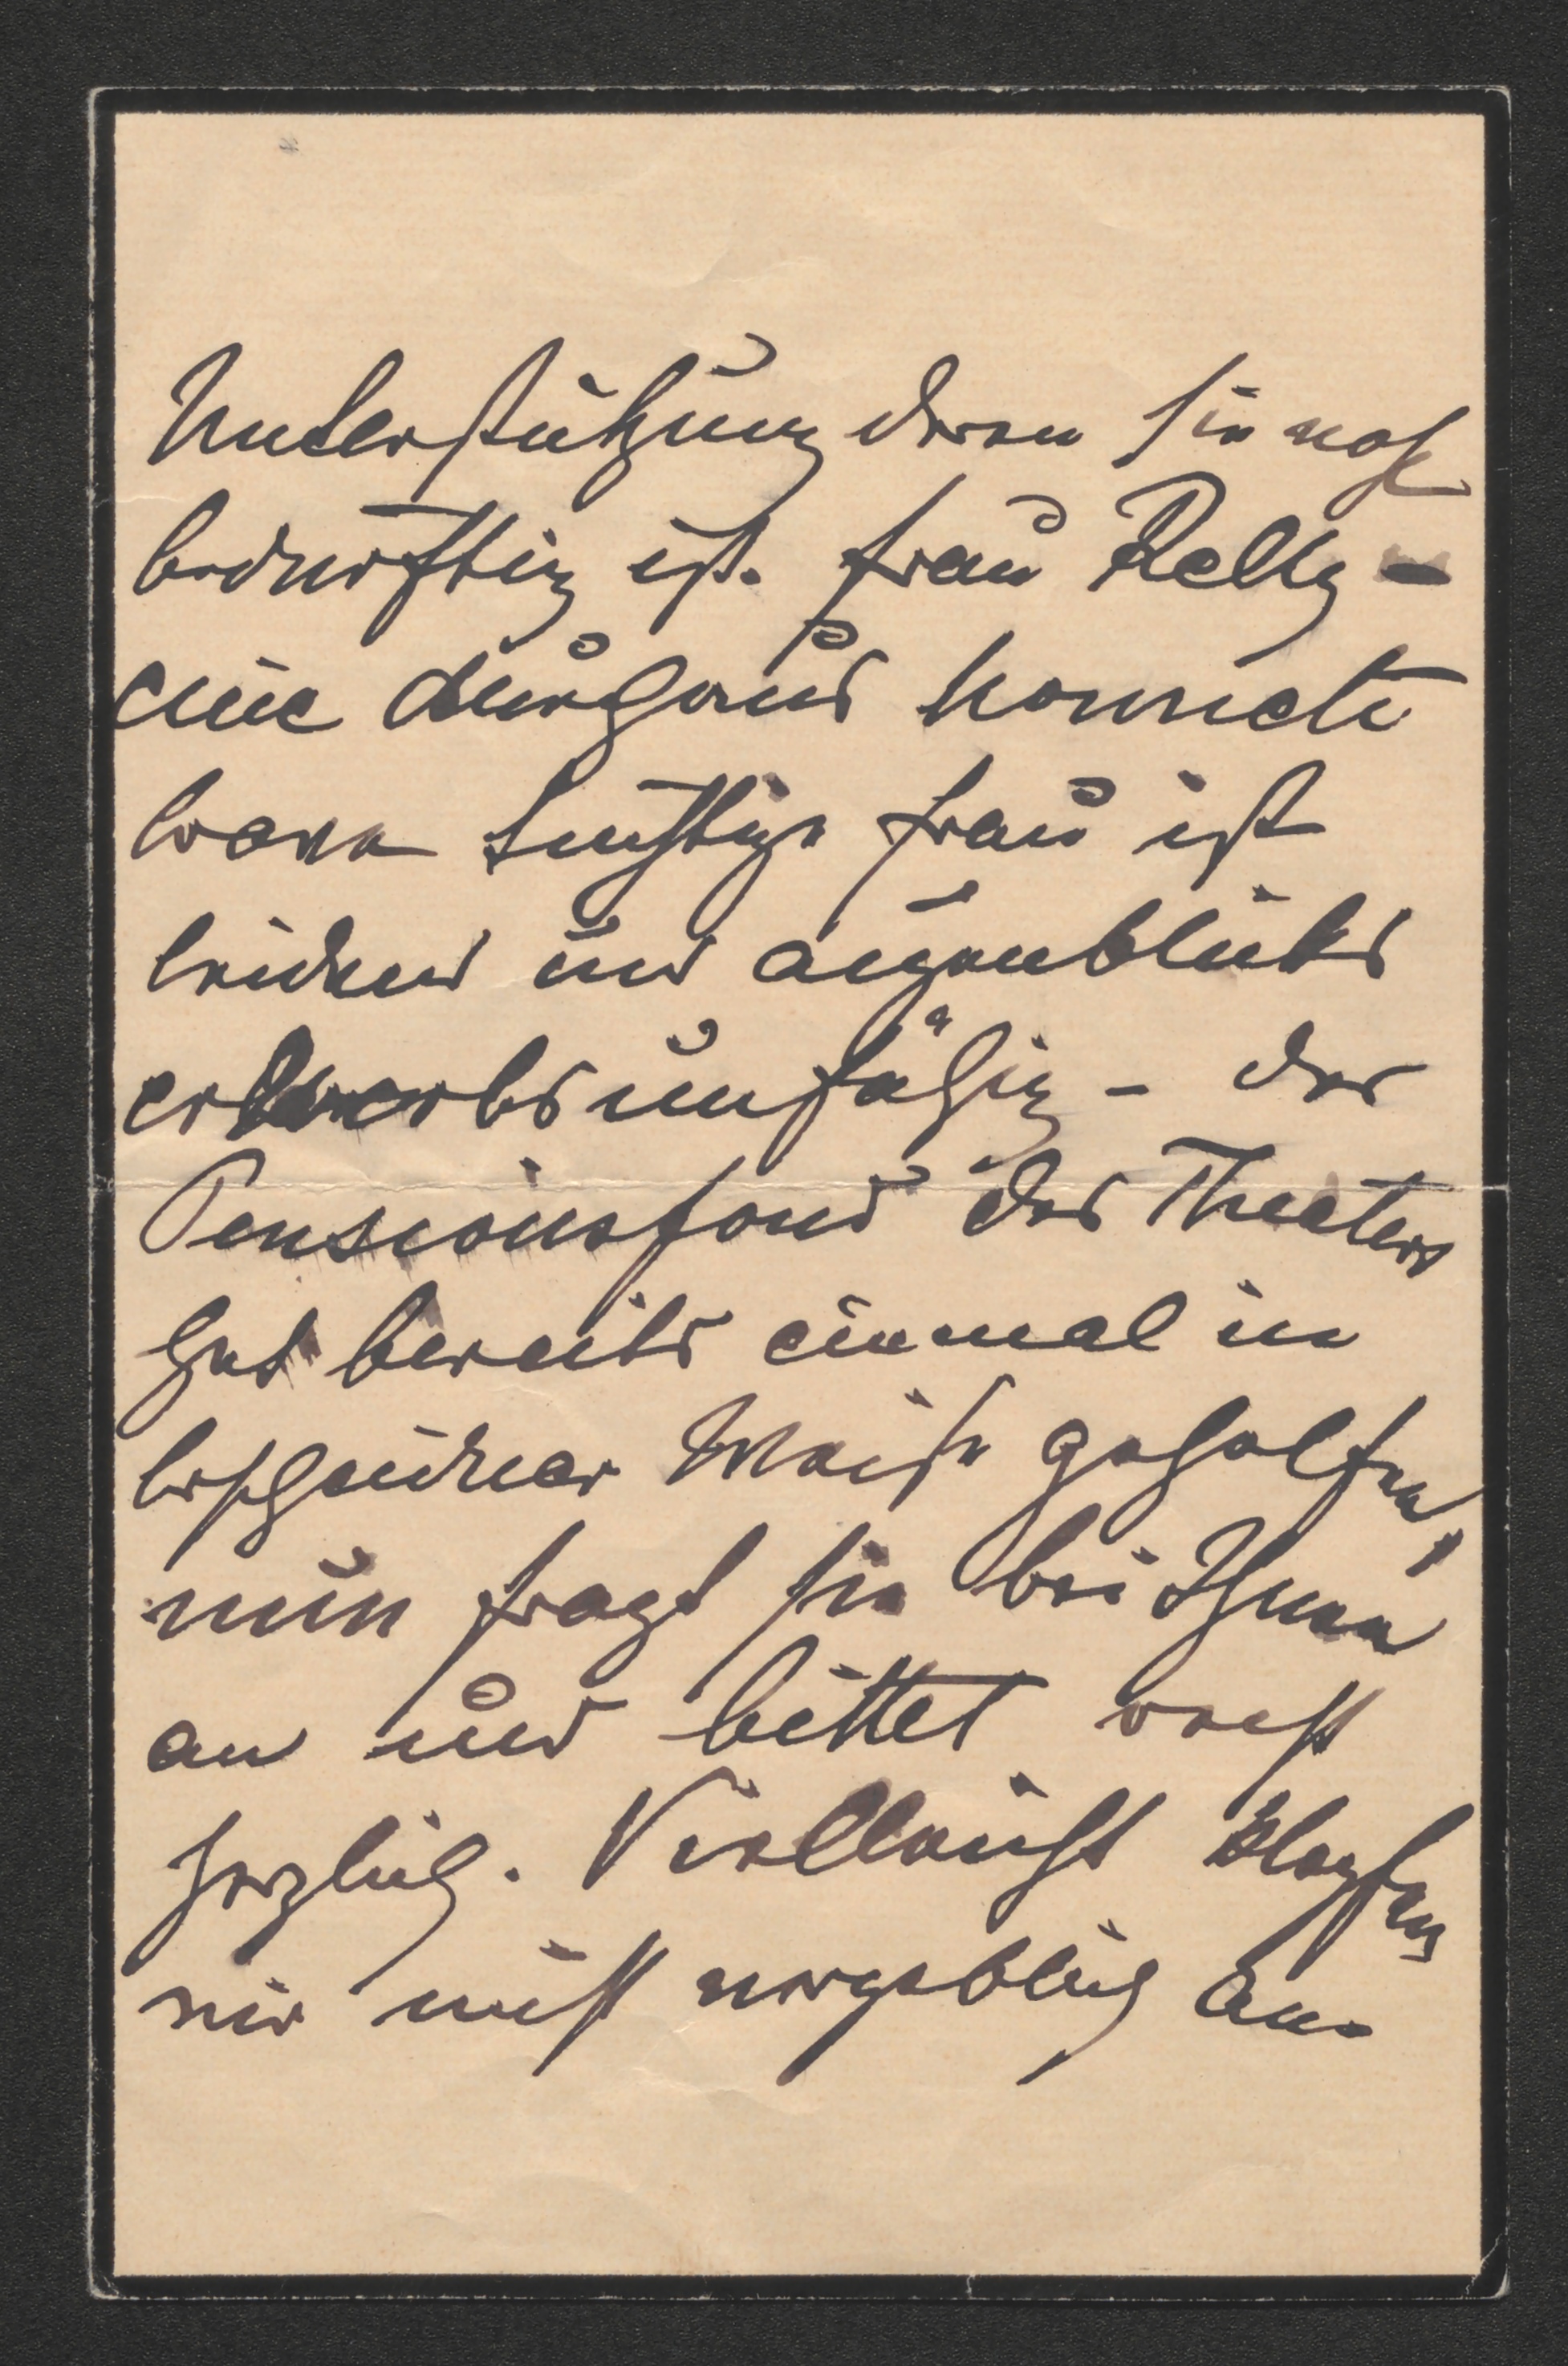 Unterstützung deren sie noch
bedürftig ist. Frau Relly -
eine durchaus honnete
brave tüchtige Frau ist
leidend und augenblickl
erwerbsunfähig - der
Pensionsfond des Theaters
hat bereits einmal in
bescheidner Weise geholfen,
nun fragt sie bei Ihnen
an und bittet recht
herzlich. Vielleicht klopfen
wir nicht vergeblich an.